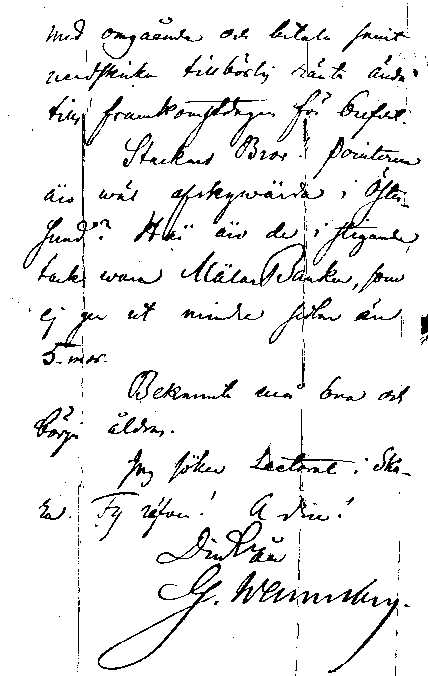 med omgående och betala samt
nedskicka tillbörlig ränta ända
till framkomstdagen för brefvet.
Stackars Bror!
äro väl afskyvärda i Öster-
sund? Här äro de i stigande,
tack vare Mälar Banken, som
ej ger ut mindre sedlar än
5 mor.
Bekanta må bra och
börja åldras.
Jag söker Lectorat i Ska-
ra. Fy räfven! Adieu!
Din Vän
G. Wennerberg.